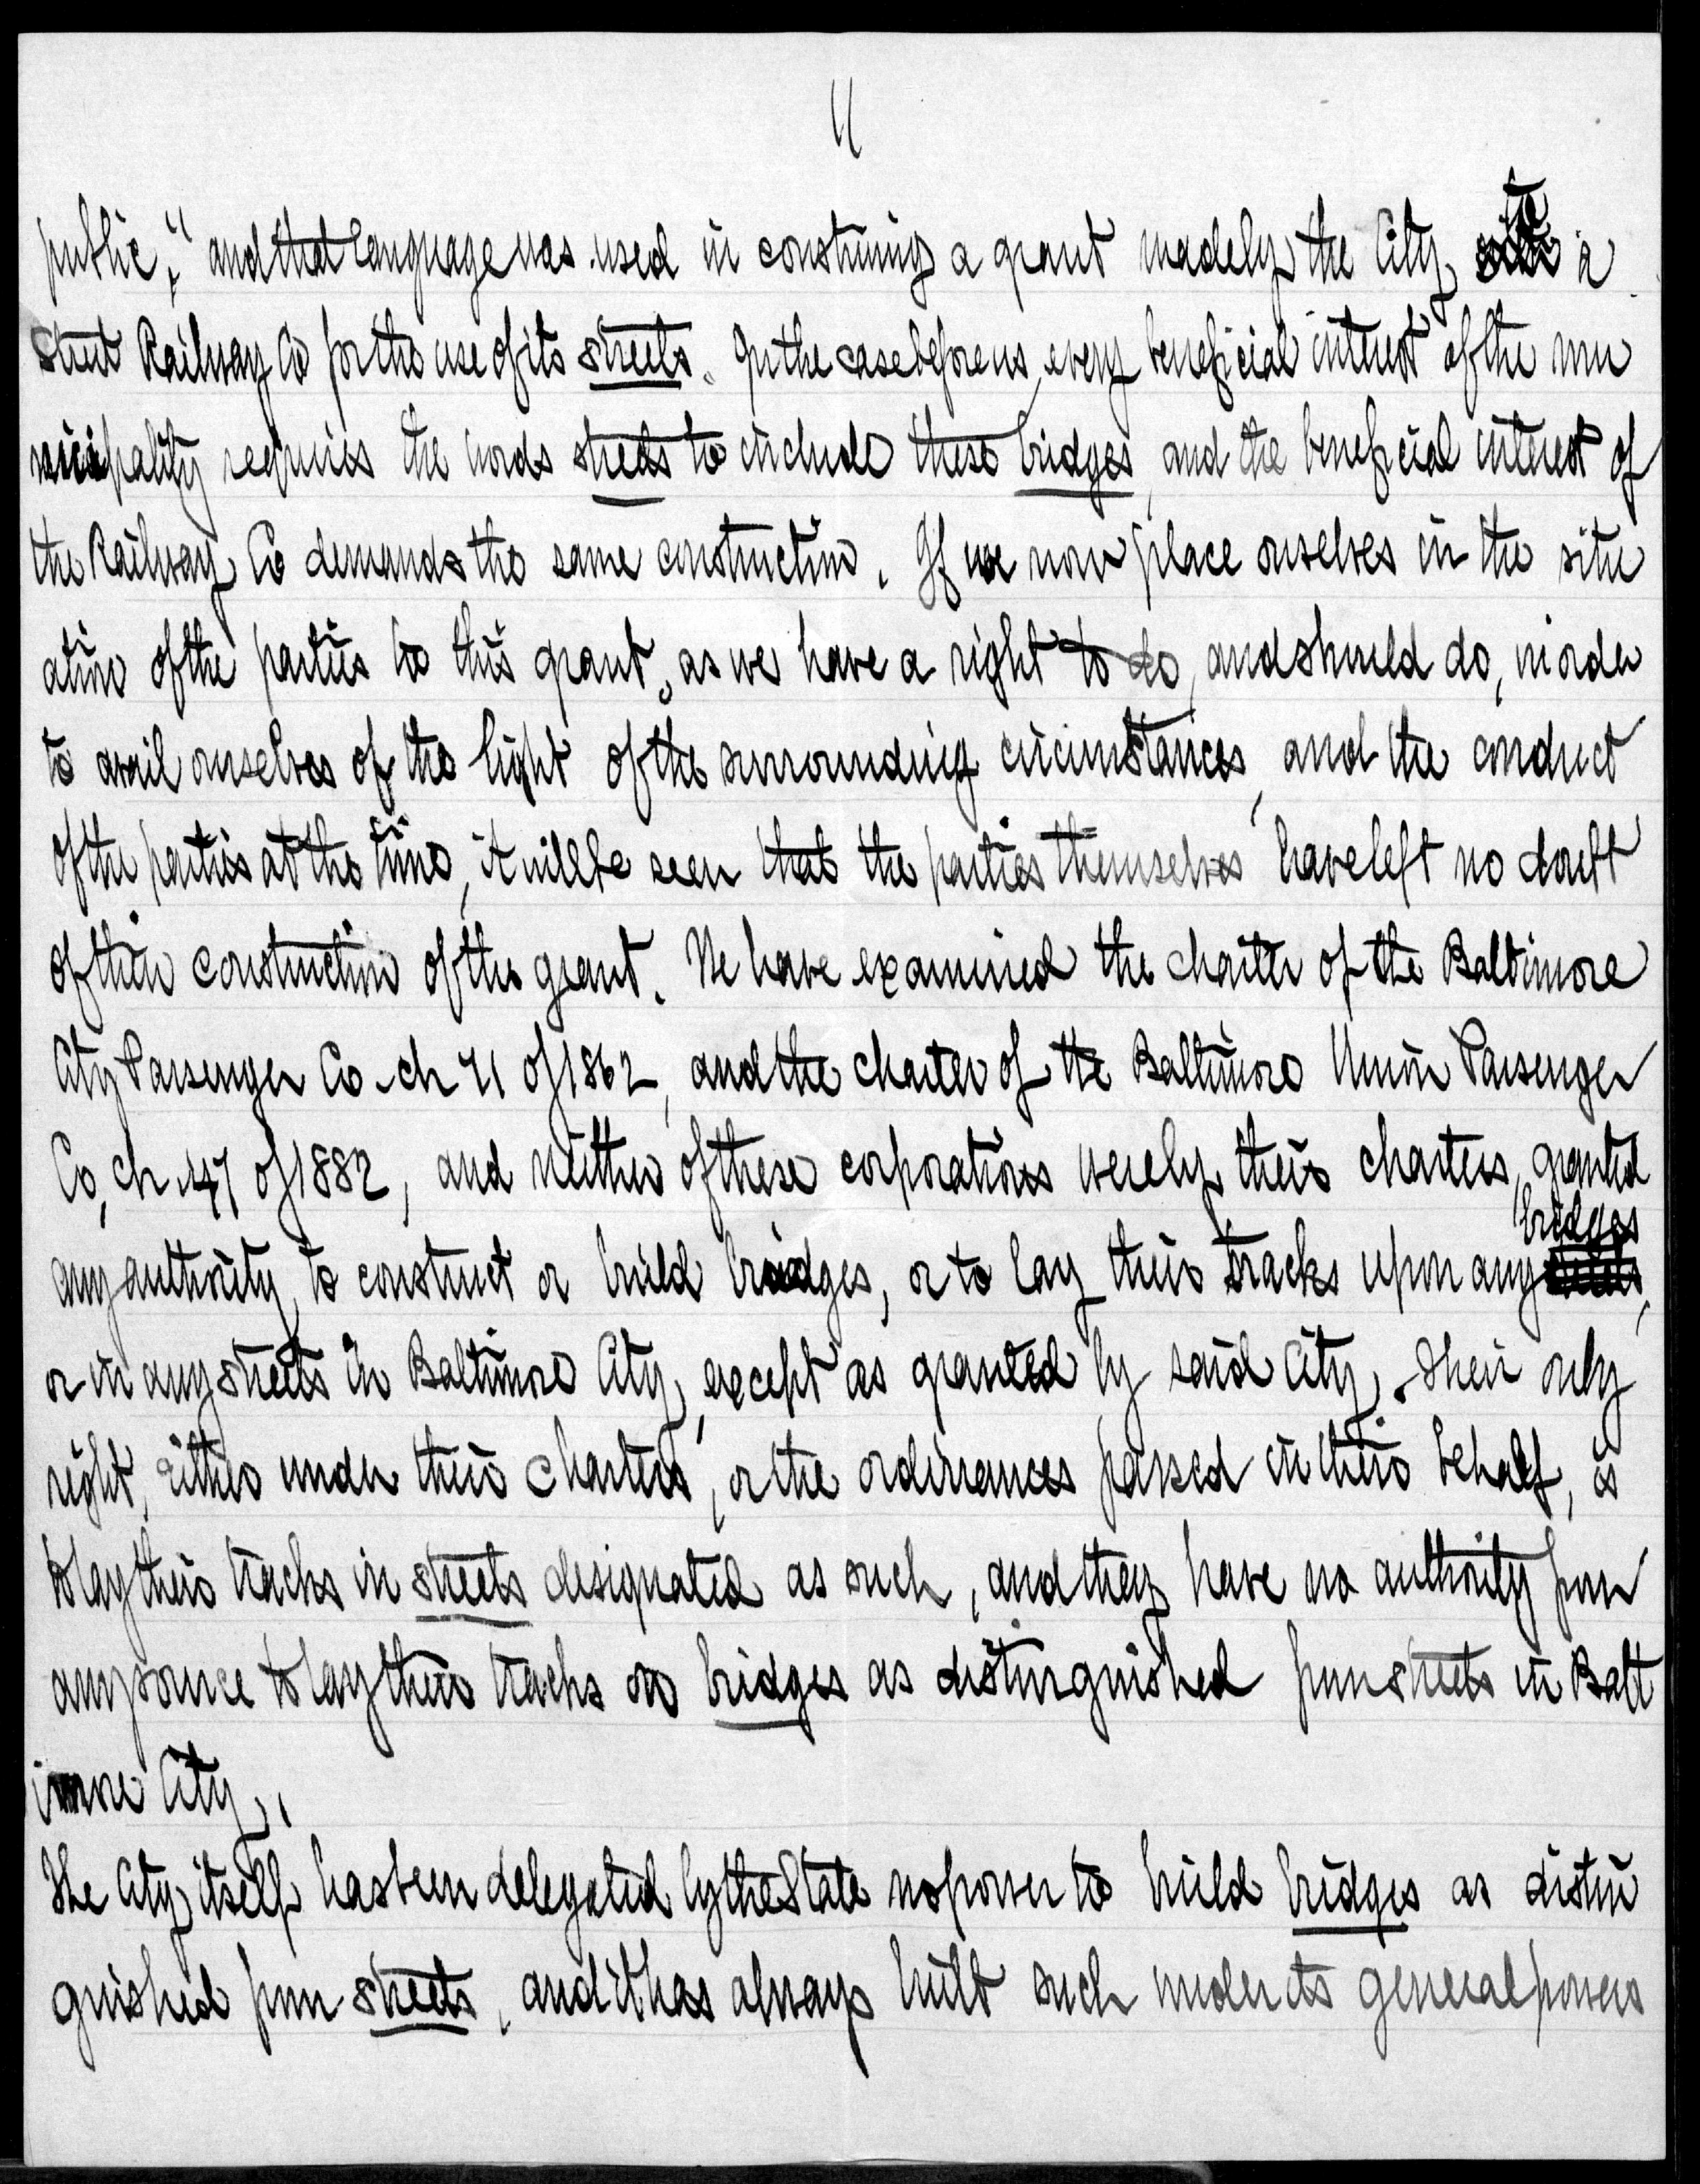 11
public," and that language was used in construing a grant made by the City to a
Street Railway Co for the use of its streets. In the case before us, every beneficial interest of the mu
nicipality requires the words streets to include these bridges, and the beneficial interest of
the Railway Co demands the same construction. If we now place ourselves in the situ
ation of the parties to this grant, as we have a right to do, and should do, in order
to avail ourselves of the light of the surrounding circumstances, and the conduct
of the parties at the time, it will be seen that the parties themselves have left no doubt
of their construction of the grant. We have examined the charter of the Baltimore
City Passenger Co. ch 71 of 1862, and the charter of the Baltimore Union Passenger
Co, ch. 47 of 1882, and neither of these corporations were by their charters, granted
any authority to construct or build bridges, or to lay their tracks upon any bridges,
or in any streets in Baltimore City, except as granted by said City. Their only
right, either under their charters, or the ordinances passed in their behalf, is
to lay their tracks in streets designated as such, and they have no authority from
any source to lay their tracks on bridges as distinguished from streets in Balt
imore City.
The City itself has been delegated by the State no power to build bridges as distin
guished from streets, and it has always built such under its general powers